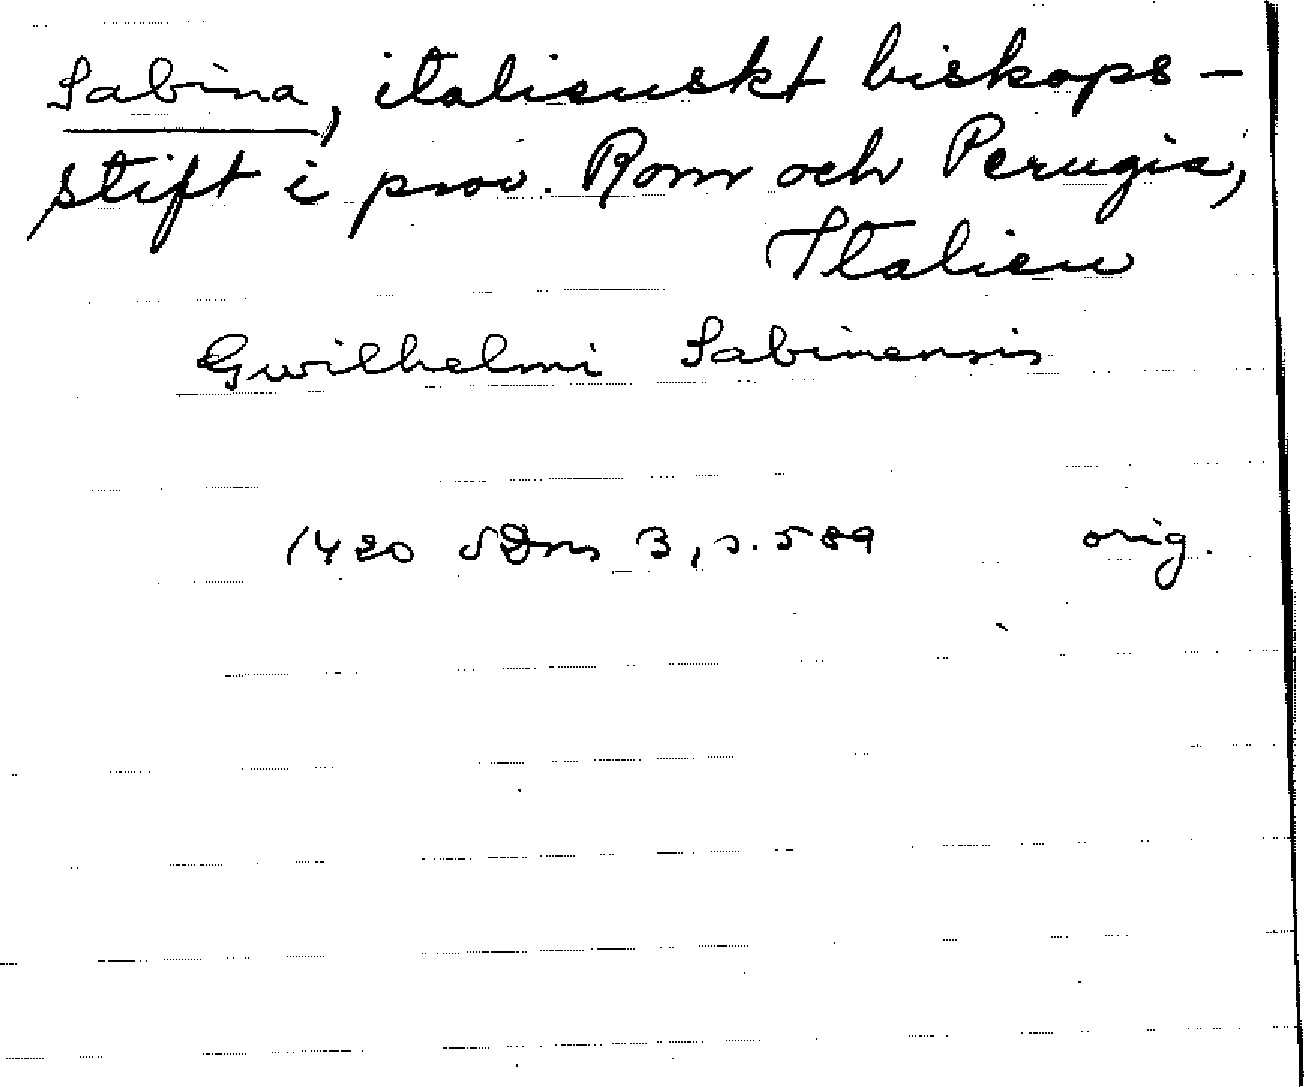 Sabina, italienskt biskops-
stift i prov. Rom och Perugia,
Italien
Gwilhelmi Sabinensis
1420 SDns 3, s. 589 orig.